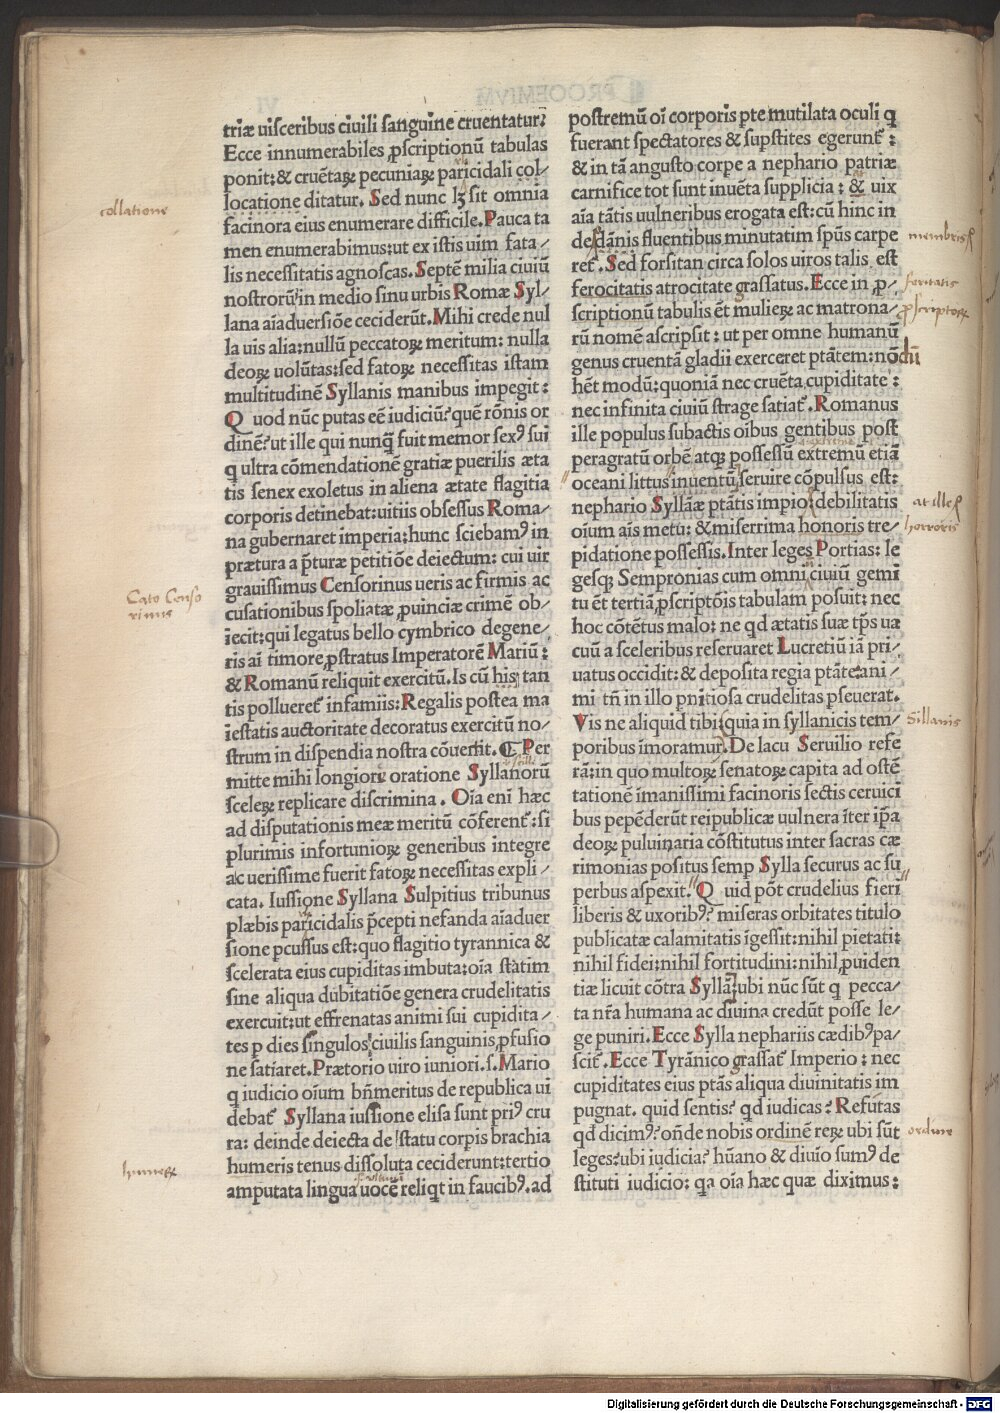 triæ uisceribus ciuili sanguine cruentatur?
Ecce innumerabiles ꝓscriptionũ tabulas
ponit: & cruẽtaꝝ pecuniaꝝ paricidali col⸗
locatione ditatur. Sed nunc lꝫ sit omnia
facinora eius enumerare difficile. Pauca ta
men enumerabimus: ut ex istis uim fata⸗
lis necessitatis agnoscas. Septẽ milia ciuiũ
nostrorũ in medio sinu urbis Romæ Syl⸗
lana aĩaduersiõe ceciderũt. Mihi crede nul
la uis alia: nullũ peccatoꝝ meritum: nulla
deoꝝ uolũtas: sed fatoꝝ necessitas istam
multitudinẽ Syllanis manibus impegit:
Quod nũc putas eẽ iudiciũ? quẽ rõnis or
dinẽ? ut ille qui nunq̃ fuit memor sexꝰ sui
q ultra cõmendationẽ gratiæ puerilis æta
tis senex exoletus in aliena ætate flagitia
corporis detinebat: uitiis obsessus Roma⸗
na gubernaret imperia: hunc sciebamꝰ in
prætura a p̃turæ petitiõe deiectum: cui uir
grauissimus Censorinus ueris ac firmis ac
cusationibus spoliatæ ꝓuinciæ crimẽ ob⸗
iecit: qui legatus bello cymbrico degene⸗
ris aĩ timore ꝓstratus Imperatorẽ Mariũ:
& Romanũ reliquit exercitũ. Is cũ his tan
tis pollueret̃ infamiis: Regalis postea ma
iestatis auctoritate decoratus exercitũ no⸗
strum in dispendia nostra cõuertit. ¶ Per
mitte mihi longiore oratione Syllanorũ
sceleꝝ replicare discrimina. Oĩa enĩ hæc
ad disputationis meæ meritũ cõferent̃: si
plurimis infortunioꝝ generibus integre
ac uerissime fuerit fatoꝝ necessitas expli⸗
cata. Iussione Syllana Sulpitius tribunus
plæbis paricidalis p̃cepti nefanda aĩaduer
sione pcussus est: quo flagitio tyrannica &
scelerata eius cupiditas imbuta: oĩa statim
sine aliqua dubitatiõe genera crudelitatis
exercuit: ut effrenatas animi sui cupidita⸗
tes p dies singulos ciuilis sanguinis ꝓfusio
ne satiaret. Prætorio uiro iuniori. s. Mario
q iudicio oĩum bñmeritus de republica ui
debat̃ Syllana iussione elisa sunt priꝰ cru
ra: deinde deiecta de statu corpis brachia
humeris tenus dissoluta ceciderunt: tertio
amputata lingua uocẽ reliqt in faucibꝰ. ad
postremũ oĩ corporis pte mutilata oculi q
fuerant spectatores & supstites egerunt̃:
& in tã angusto corpe a nephario patriæ
carnifice tot sunt inuẽta supplicia: & uix
aĩa tãtis uulneribus erogata est: cũ hinc in
de dãnis fluentibus minutatim spũs carpe
ret̃. Sed forsitan circa solos uiros talis est
ferocitatis atrocitate grassatus. Ecce in ꝓ⸗
scriptionũ tabulis ẽt mulieꝝ ac matrona⸗
rũ nomẽ ascripsit: ut per omne humanũ
genus cruentã gladii exerceret ptãtem: nõ
hẽt modũ: quoniã nec cruẽta cupiditate:
nec infinita ciuiũ strage satiat̃. Romanus
ille populus subactis oĩbus gentibus post
peragratũ orbẽ atqꝫ possessũ extremũ etiã
oceani littus inuentũ seruire cõpulsus est:
nephario Syllæ ptãtis impio: debilitatis
oĩum aĩs metu: & miserrima honoris tre⸗
pidatione possessis. Inter leges Portias: le
gesqꝫ Sempronias cum omni ciuiũ gemi
tu ẽt tertiã ꝓscriptõis tabulam posuit: nec
hoc cõtẽtus malo: ne qd ætatis suæ tp̃s ua
cuũ a sceleribus reseruaret Lucretiũ iã pri⸗
uatus occidit: & deposita regia ptãte: ani⸗
mi tñ in illo pnitiosa crudelitas pseuerat.
Vis ne aliquid tibi quia in syllanicis tem⸗
poribus ĩmoramur. De lacu Seruilio refe
rã: in quo multoꝝ senatoꝝ capita ad ostẽ
tationẽ ĩmanissimi facinoris sectis ceruici
bus pepẽderũt reipublicæ uulnera ĩter ip̃a
deoꝝ puluinaria cõstitutus inter sacras cæ
rimonias positus semp Sylla securus ac su
perbus aspexit. Quid põt crudelius fieri
liberis & uxoribꝰ? miseras orbitates titulo
publicatæ calamitatis ĩgessit: nihil pietati:
nihil fidei: nihil fortitudini: nihil ꝓuiden
tiæ licuit cõtra Syllã: ubi nũc sũt q pecca⸗
ta nr̃a humana ac diuina credũt posse le⸗
ge puniri. Ecce Sylla nephariis cædibꝰ pa⸗
scit̃. Ecce Tyrãnico grassat̃ Imperio: nec
cupiditates eius ptãs aliqua diuinitatis im
pugnat. quid sentis? qd iudicas? Refutas
qd dicimꝰ? oñde nobis ordinẽ reꝝ ubi sũt
leges? ubi iudicia? hũano & diuĩo sumꝰ de
stituti iudicio: qa oĩa hæc quæ diximus:
collatione
Cato Censo
rinus
humeꝝ
membris
feritatis
ꝓscriptoꝝ
dũ
at ille
horroris
Sillanis
ordine
Digitalisierung gefördert durch die Deutsche Forschungsgemeinschaft - DFG